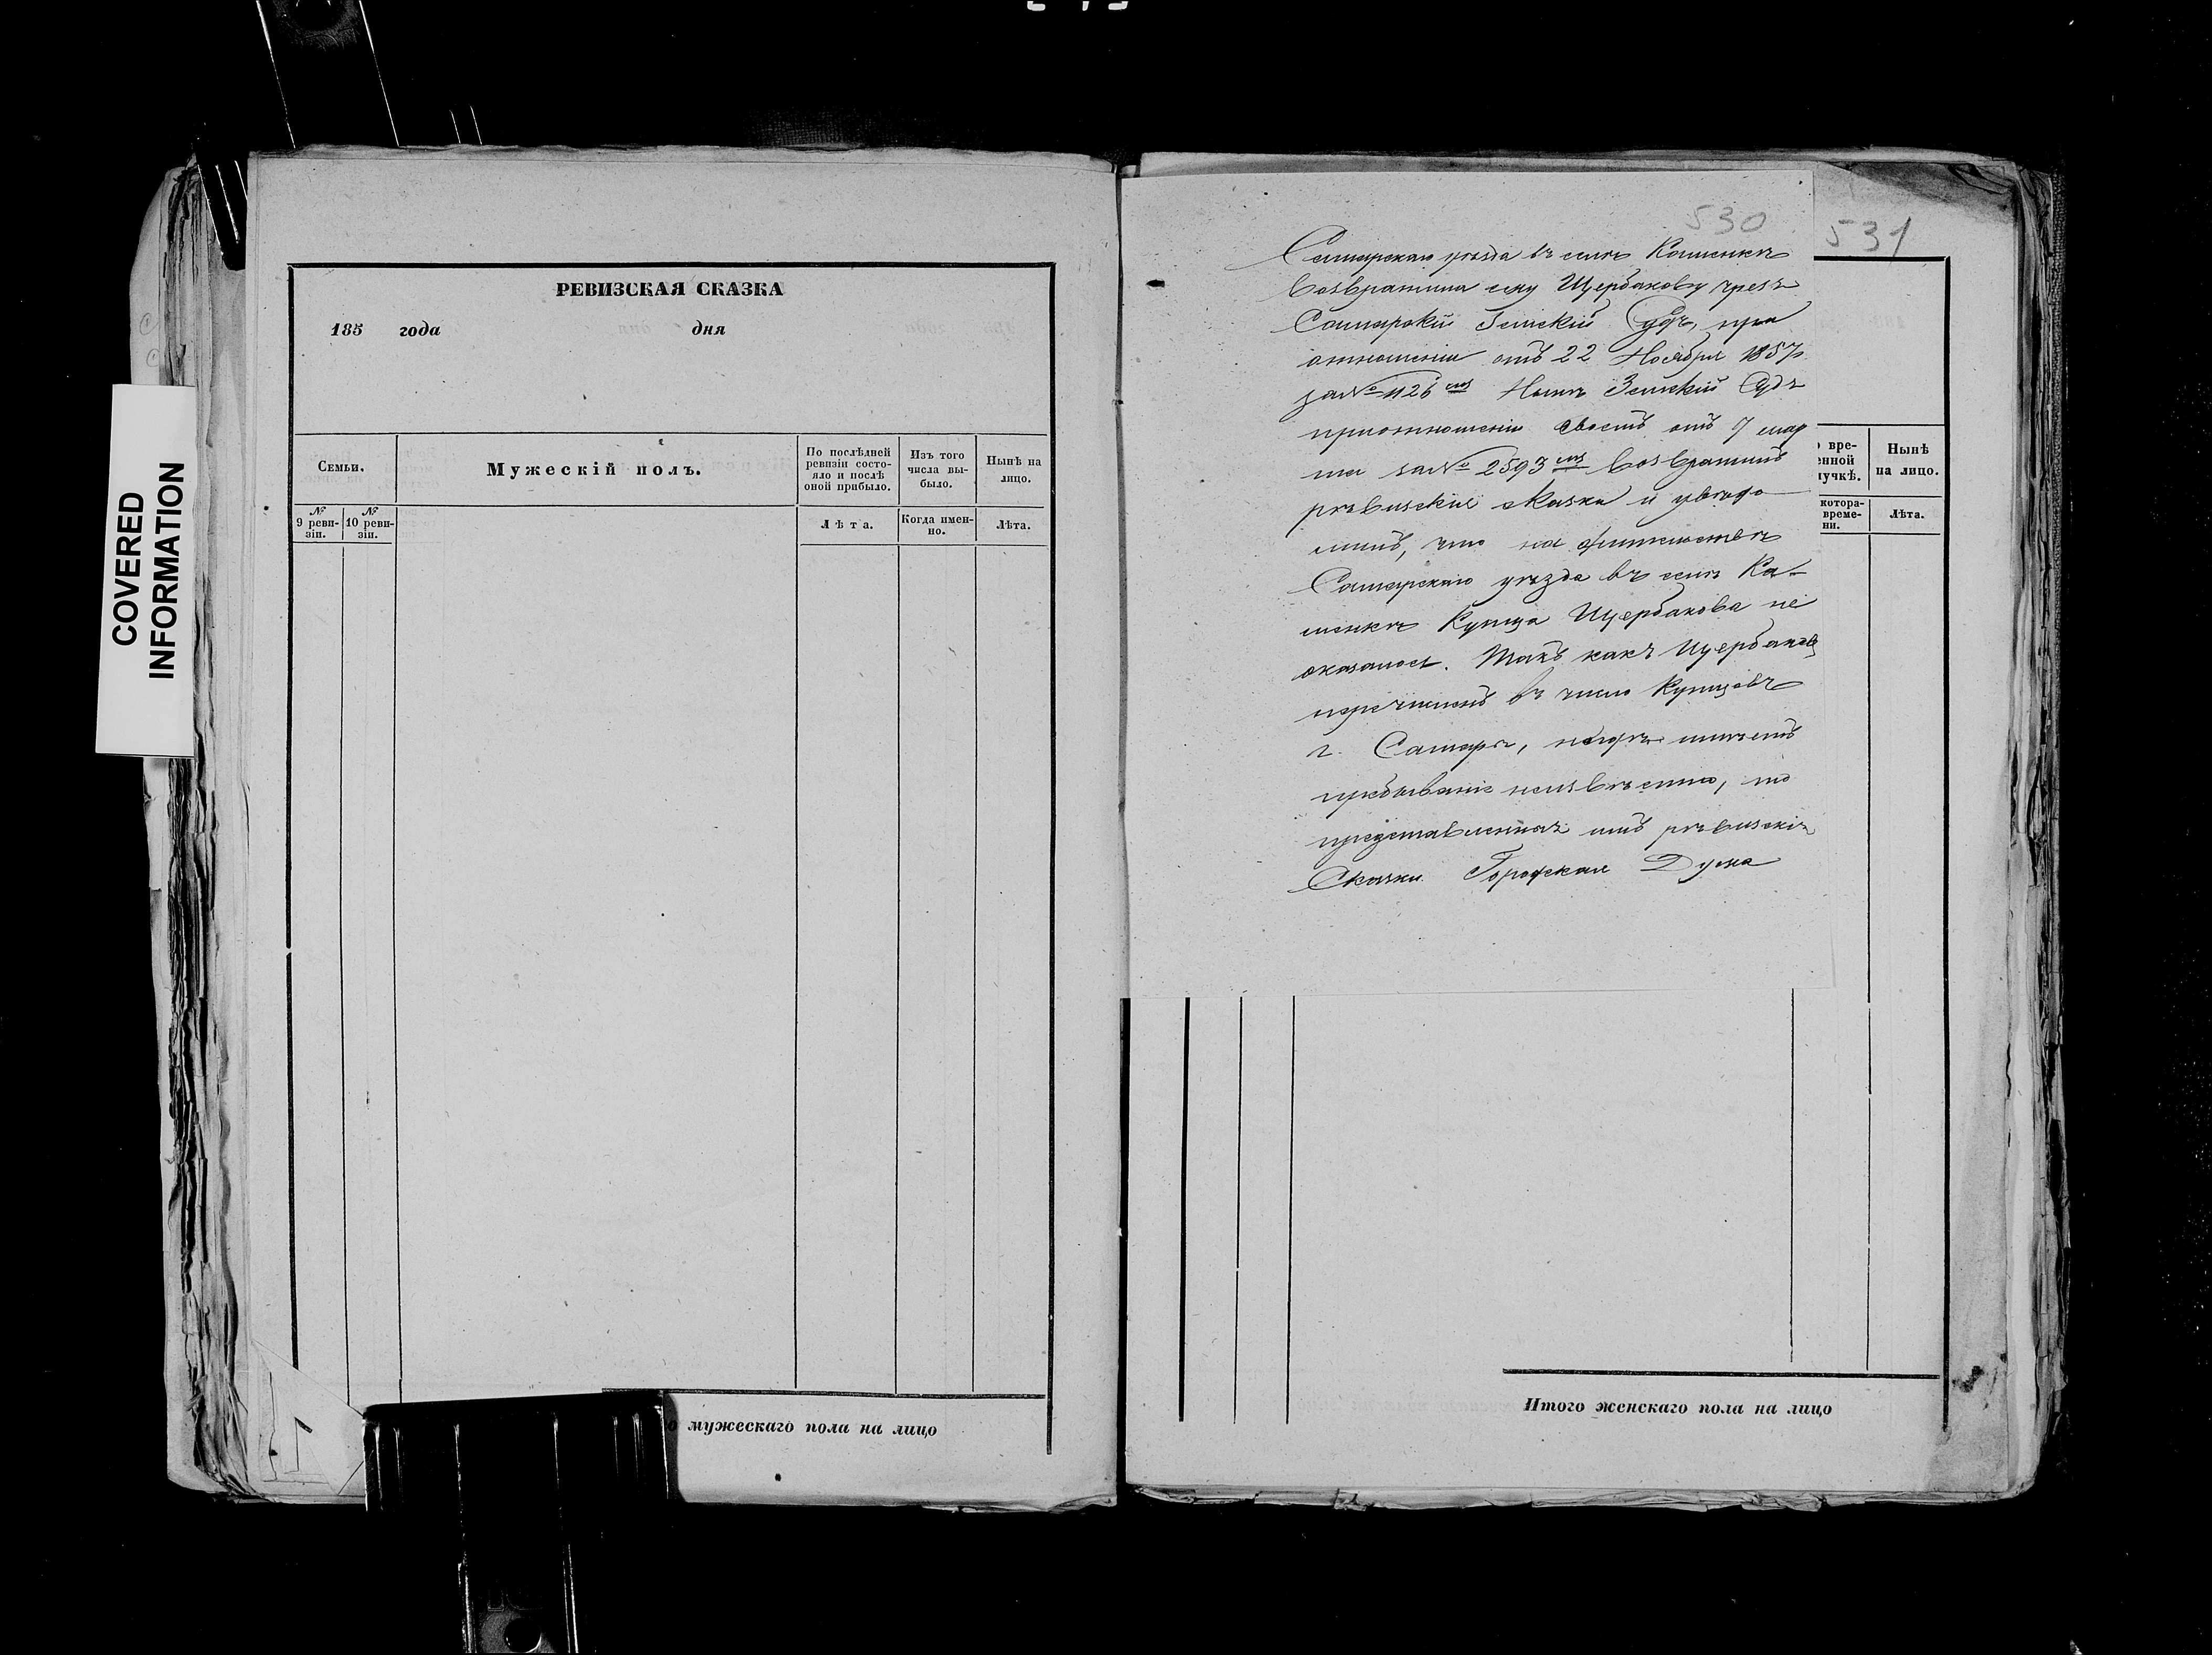 COVERED
INFORMATION
РЕВИЗСКАЯ СКАЗКА
185 года дня
Семьи.
Мужескій полъ.
По послѣдней
ревизіи состо-
яло и послѣ
оной прибыло.
Изъ того
числа вы-
было.
Нынѣ на
лицо.
№
9 реви-
зіи.
№
10 реви-
зіи.
Лѣта.
Когда имен-
но.
Лѣта.
мужескаго пола на лицо
530
531
Самарскаго уѣзда въ селѣ Каменкѣ
возвратила ему Щербакову чрезъ
Самарскій Земскій Судъ, при
отношеніи отъ 22 Ноября 1857
за № 1126 Нынѣ Земскій Судъ
при отношеніи своемъ отъ 7 мар
та за № 2593 возвратилъ
ревизскія сказки и увѣдо
милъ, что на жительствѣ
Самарскаго уѣзда въ селѣ Ка-
менкѣ Купца Щербакова не
оказалось. Такъ какъ Щербаковъ
перечисленъ въ число Купцовъ
г. Самары, но гдѣ имѣетъ
пребываніе неизвѣстно, то
представленныя имъ ревизскія
Сказки Городская Дума
вре-
нной
лучкѣ.
Нынѣ
на лицо.
котора-
време-
ни.
Лѣта.
Итого женскаго пола на лицо